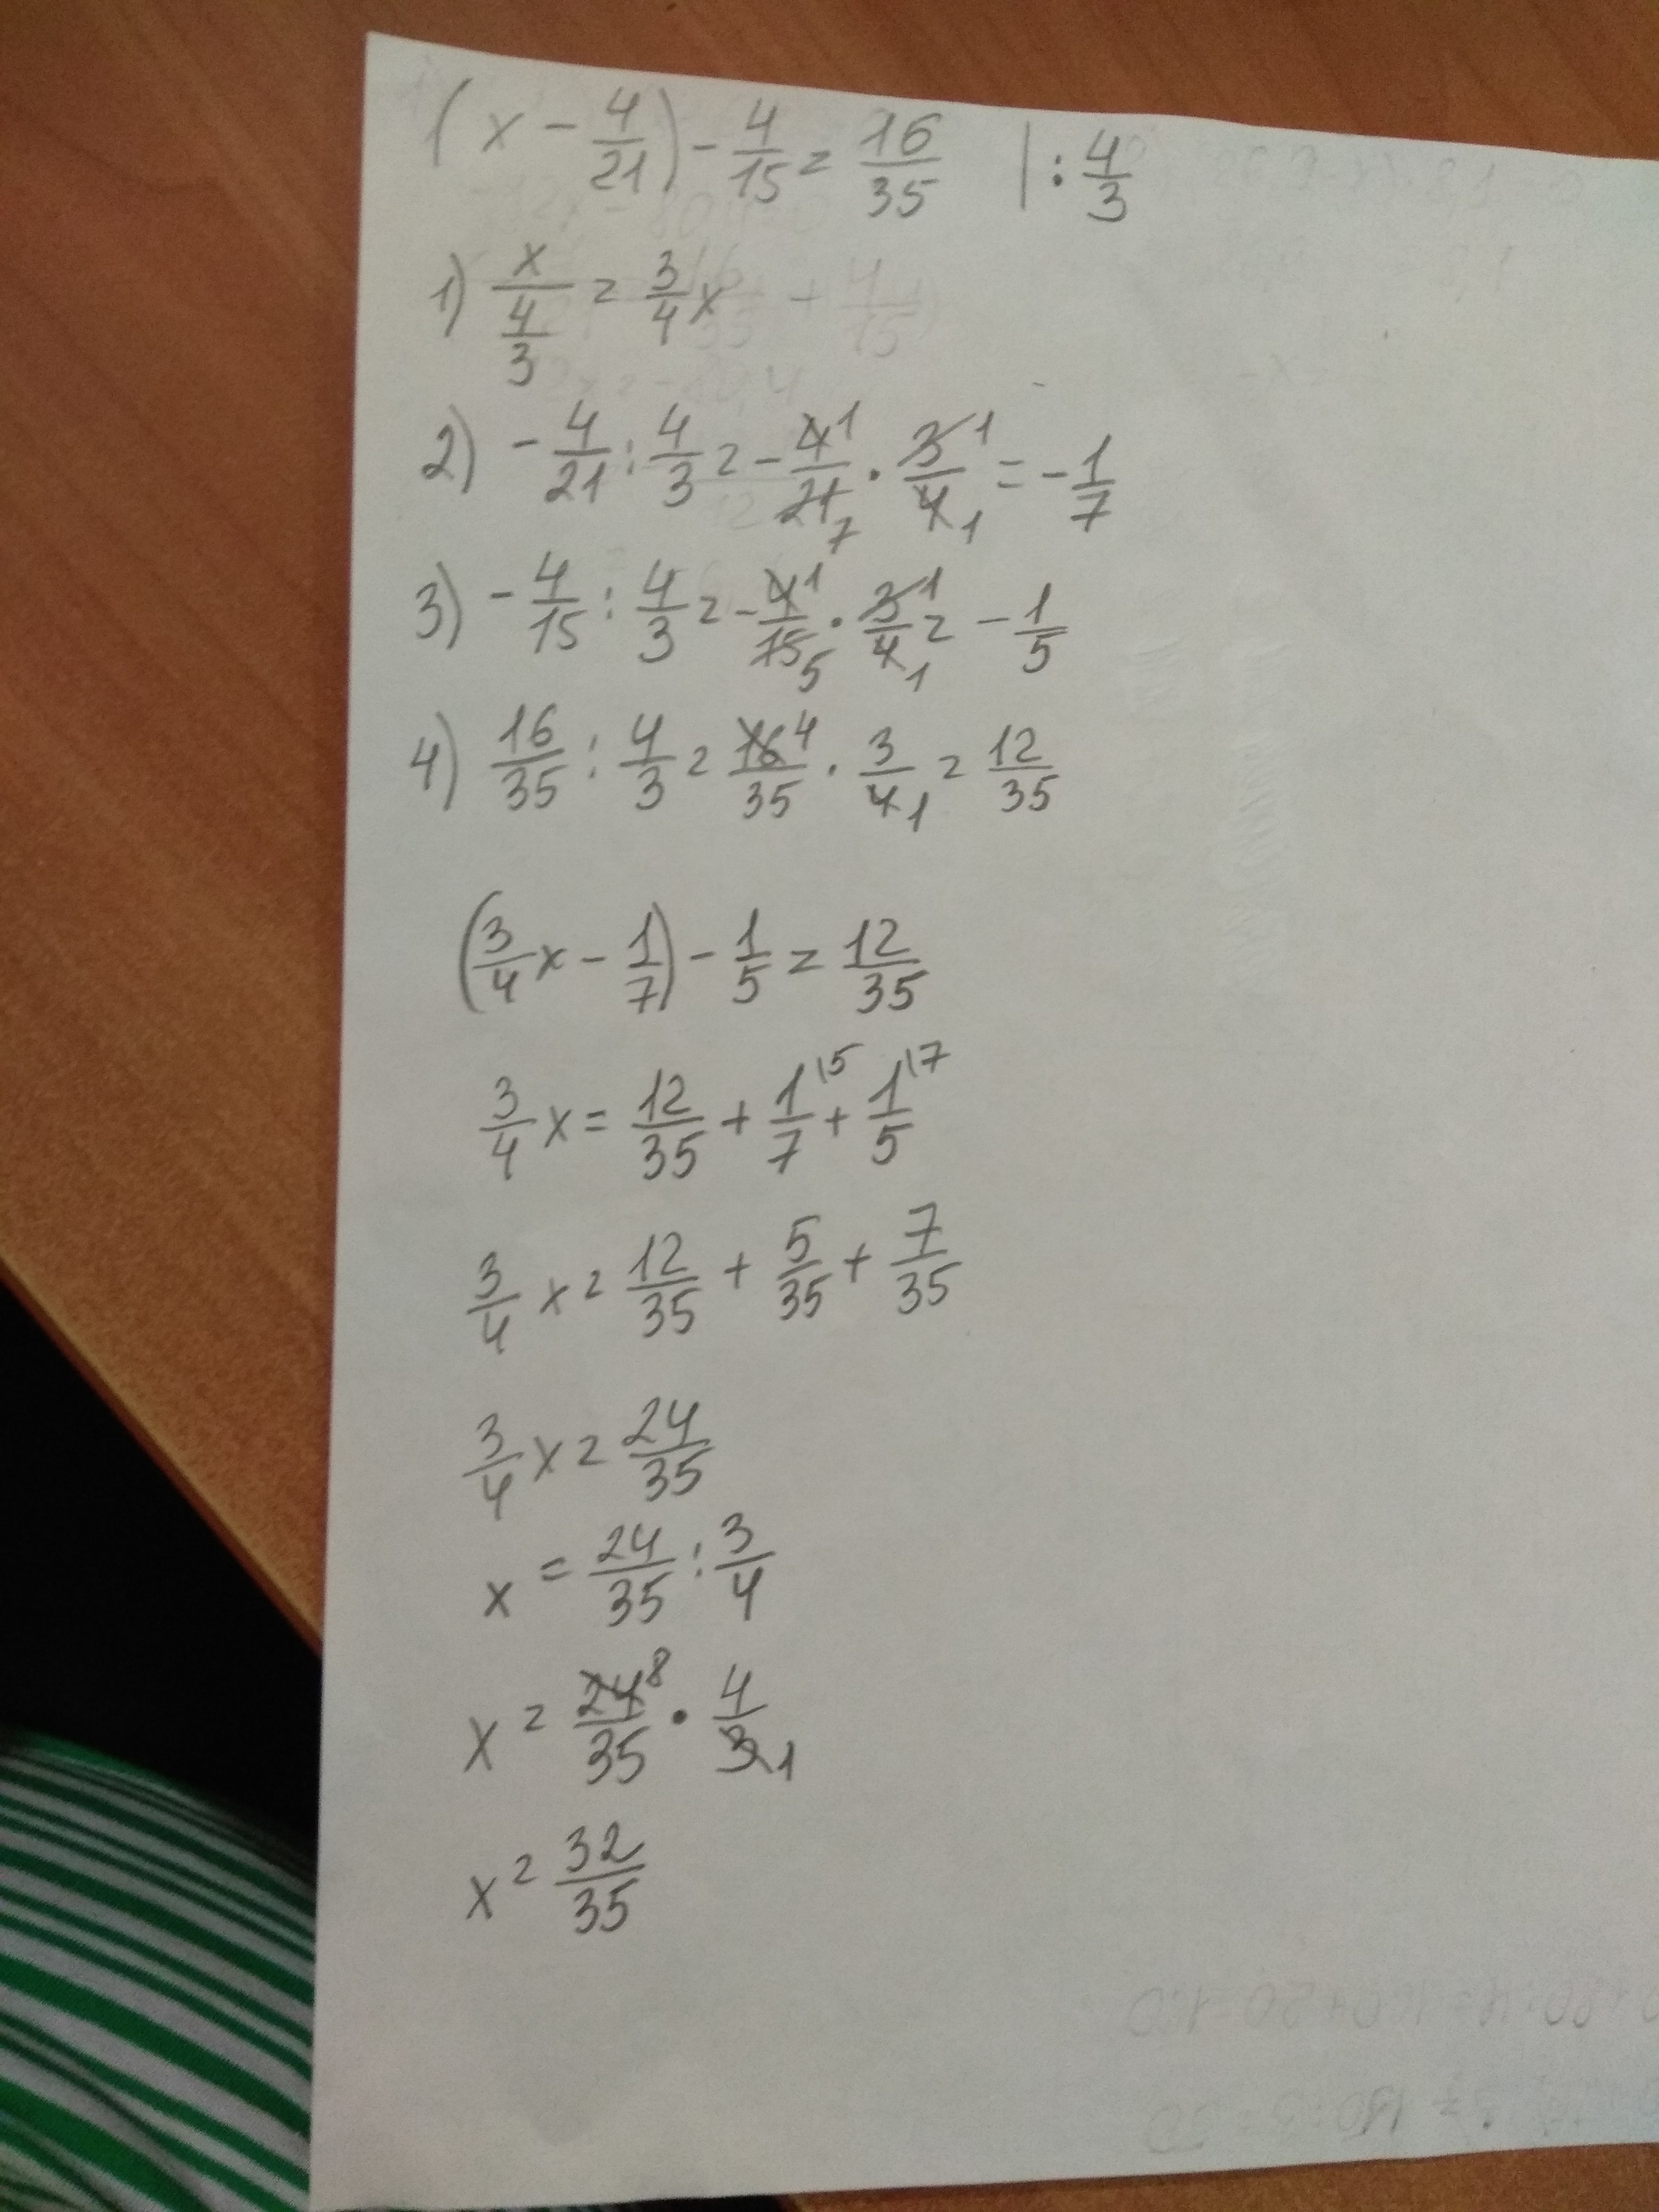 (x - 4/21) - 4/15 = 16/35 | : 4/3
1) x/(4/3) = 3/4 x
2) - 4/21 : 4/3 = - 4¹/21₇ · 3¹/4₁ = - 1/7
3) - 4/15 : 4/3 = - 4¹/15₅ · 3¹/4₁ = - 1/5
4) 16/35 : 4/3 = 16⁴/35 · 3/4₁ = 12/35
(3/4 x - 1/7) - 1/5 = 12/35
3/4 x = 12/35 + 1/7 \5 + 1/5 \7
3/4 x = 12/35 + 5/35 + 7/35
3/4 x = 24/35
x = 24/35 : 3/4
x = 24⁸/35 · 4/3₁
x = 32/35